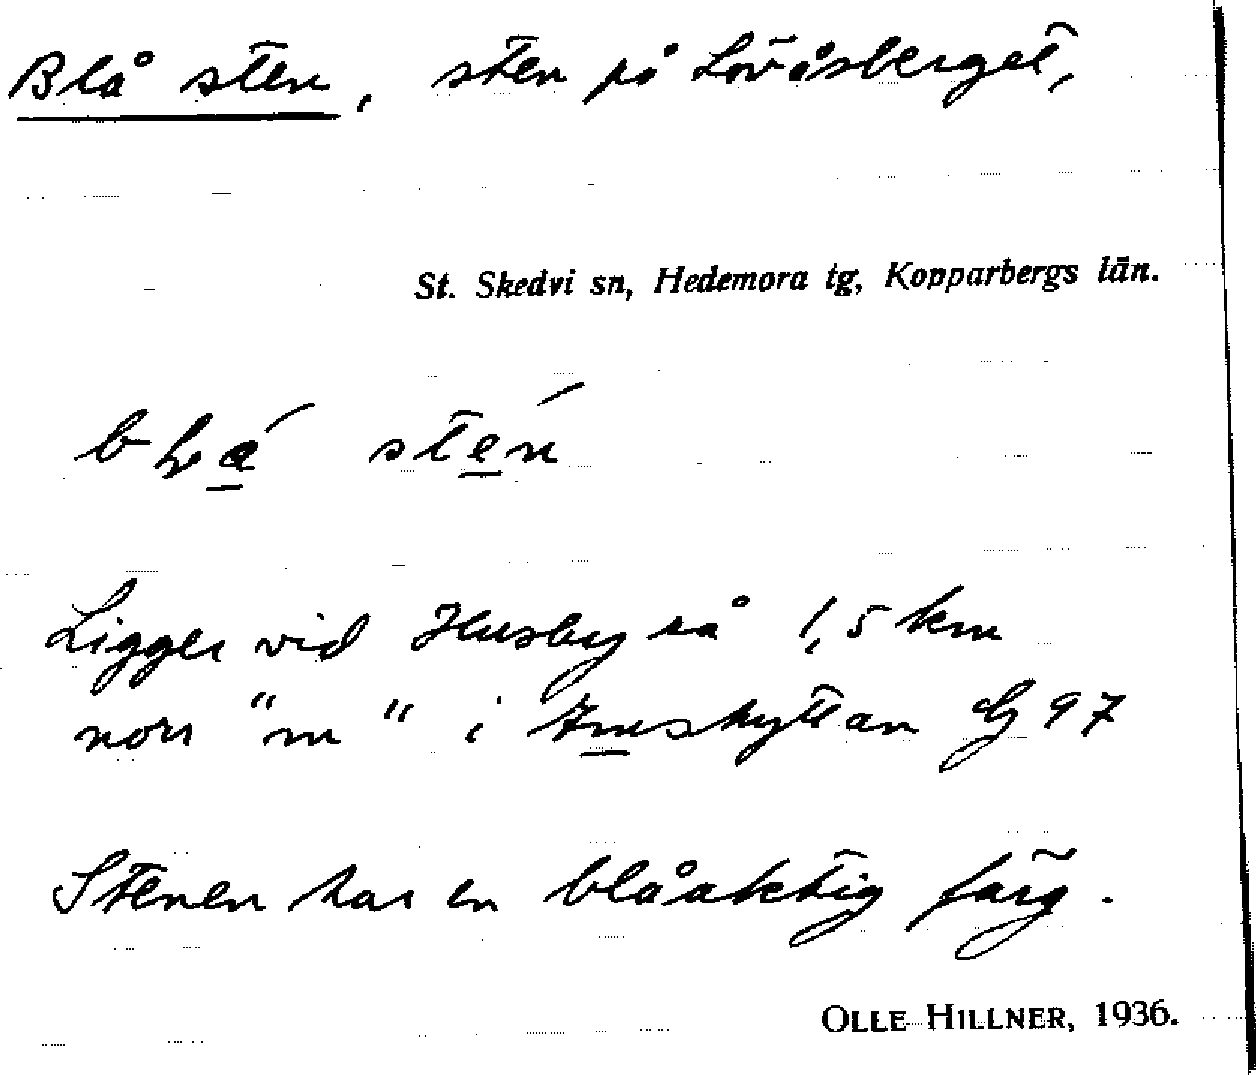 Blå sten, sten på Lövåsberget,
St. Skedvi sn, Hedemora tg, Kopparbergs län.
sten
Ligger vid Husby rå 1,5 km
norr "m" i Imshyttan Eg 97
Stenen har en blåaktig färg.
OLLE HILLNER, 1936.